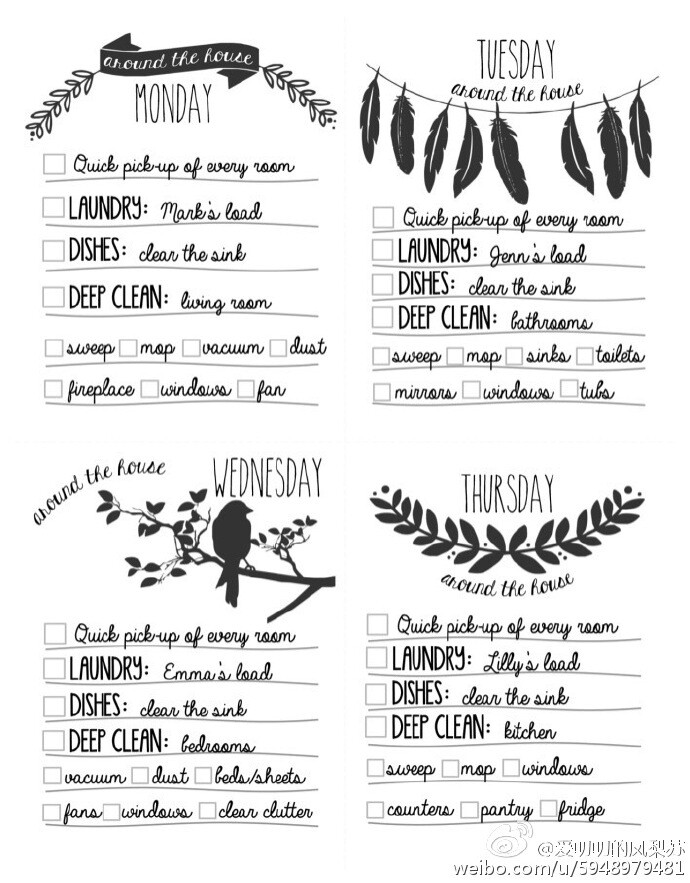 around the house
MONDAY
Quick pick-up of every room
LAUNDRY: Mark's load
DISHES: clear the sink
DEEP CLEAN: living room
sweep mop vacuum dust
fireplace windows fan
TUESDAY
around the house
Quick pick-up of every room
LAUNDRY: Jenn's load
DISHES: clear the sink
DEEP CLEAN: bathrooms
sweep mop sinks toilets
mirrors windows tubs
around the house
WEDNESDAY
Quick pick-up of every room
LAUNDRY: Emma's load
DISHES: clear the sink
DEEP CLEAN: bedrooms
vacuum dust beds/sheets
fans windows clear clutter
THURSDAY
around the house
Quick pick-up of every room
LAUNDRY: Lilly's load
DISHES: clear the sink
DEEP CLEAN: kitchen
sweep mop windows
counters pantry fridge
@爱叨叨的凤梨苏
weibo.com/u/5948979481